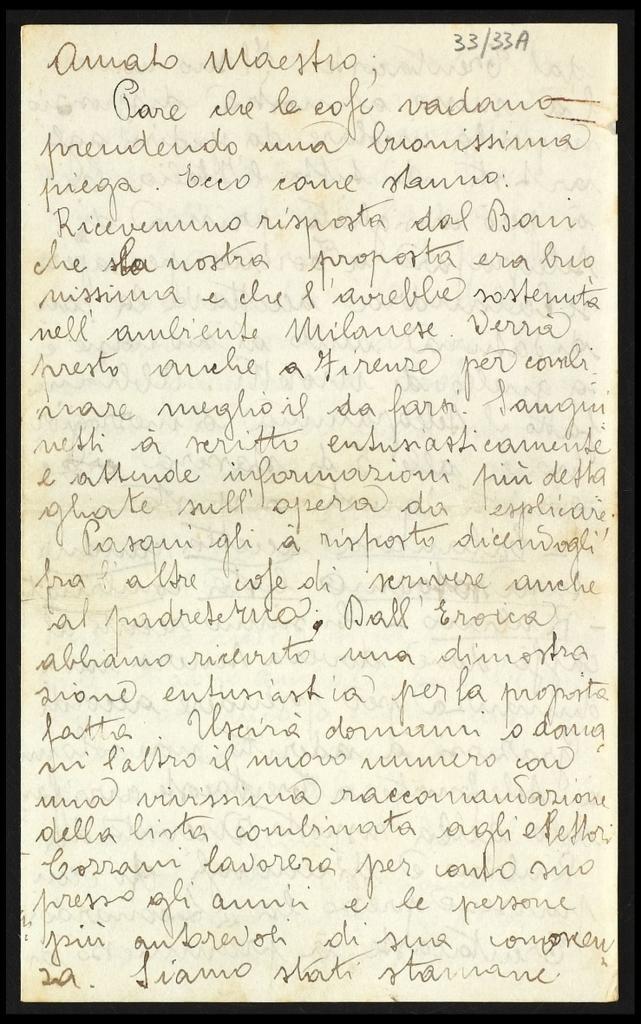 33/33A
Amato Maestro;
Pare che le cose vadano
prendendo una buonissima
piega. Ecco come stanno:
Ricevemmo risposta dal Boni
che la nostra proposta era buo
nissima e che l'avrebbe sostenuta
nell'ambiente Milanese. Verrà
presto anche a Firenze per combi
nare meglio il da farsi. Sangui
netti à scritto entusiasticamente
e attende informazioni più detta
gliate sull'opera da esplicare.
Pasqui gli à risposto dicendogli
fra l'altre cose di scrivere anche
al padreterno; Dall'Eroica
abbiamo ricevuto una dimostra
zione entusiastia per la proposta
fatta. Uscirà domani o doma
ni l'altro il nuovo numero con
una vivissima raccomandazione
della lista combinata agli elettori
Cozzani lavorerà per conto suo
presso gli amici e le persone
più autorevoli di sua conoscen
za. Siamo stati stamane